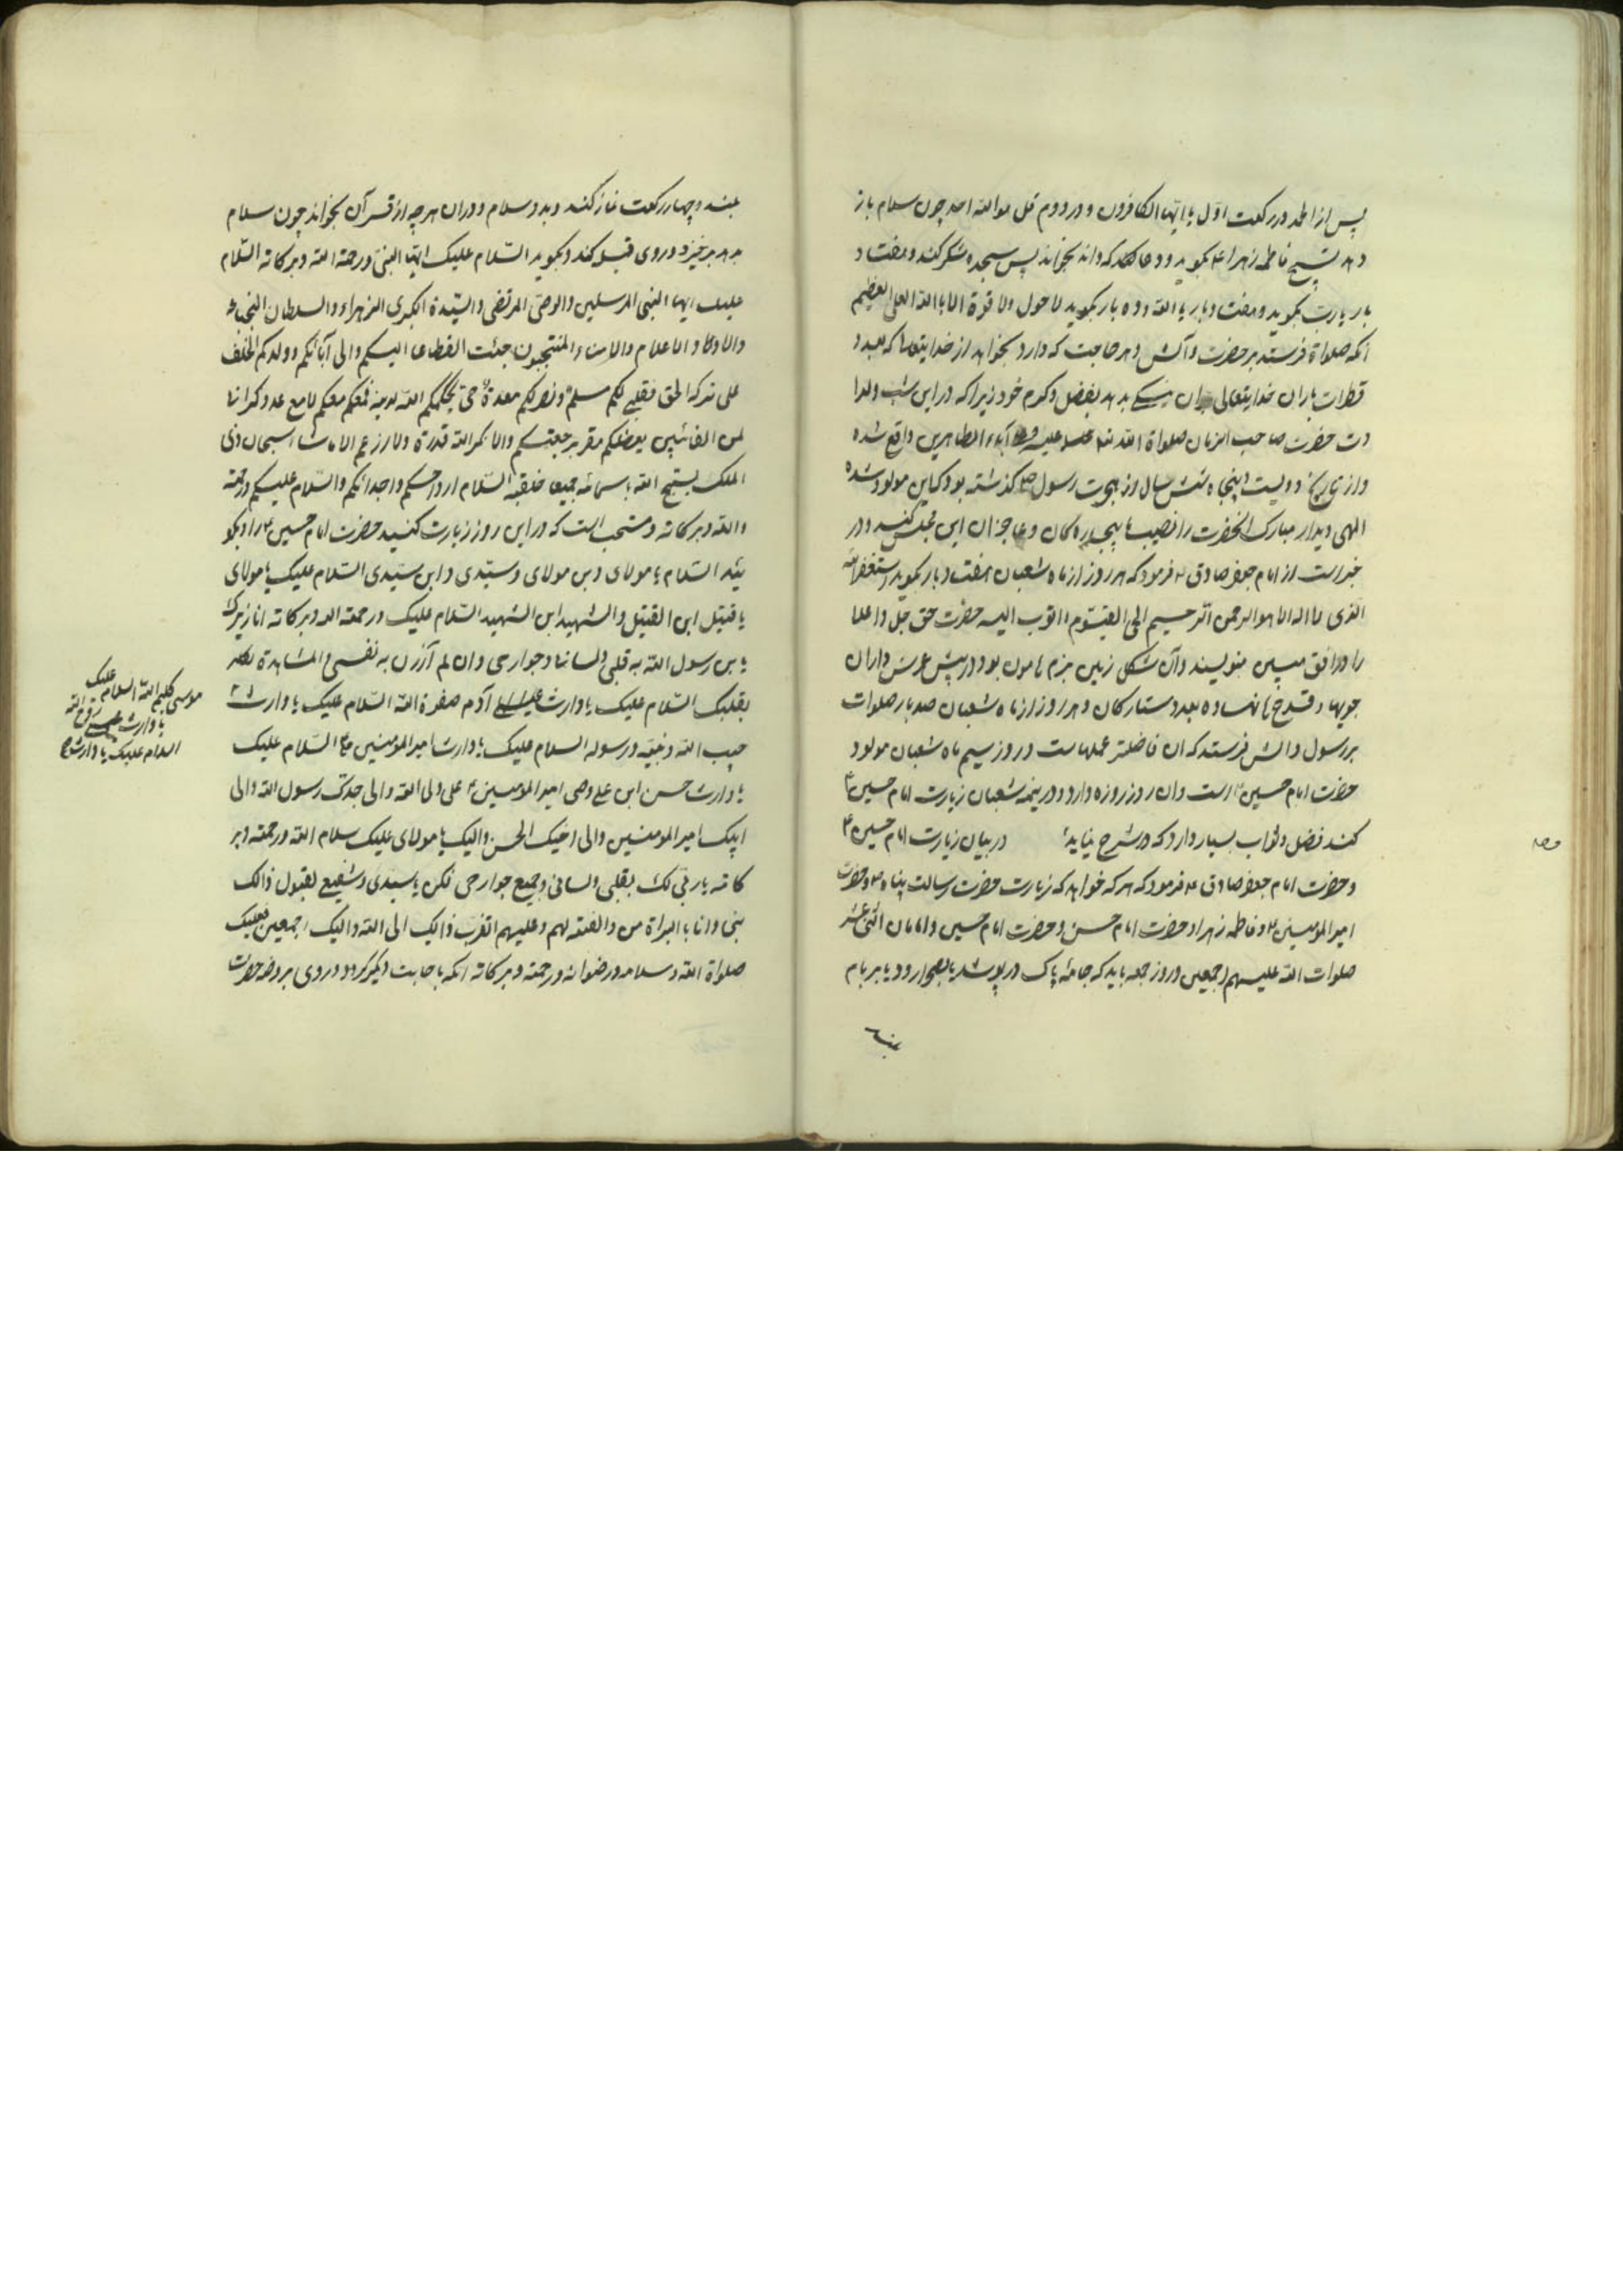 پس از الحمد در رکعت اول یا ایها الکافرون و در دوم قل هو الله احد چون سلام باز
دهد تسبیح فاطمه زهرا ع بگوید و دعا که داند بخواند پس سجده شکر کند و هفتاد
بار یا رب بگوید و هفتاد بار یا الله و ده بار بگوید لا حول ولا قوة الا بالله العلی العظیم
انکه صلواة فرستد بر حضرت و آلش و هر حاجت که دارد بخواهد از خدایتعالی که بعدد
قطرات باران خدایتعالی بدهد بفضل و کرم خود زیرا که در این شب ولدا
دت حضرت صاحب الزمان صلواة الله علیه و آباء الطاهرین واقع شده
و از تاریخ دویست و پنجاه شش سال از هجرت رسول ص گذشته بود کاین مولود شده
الهی دیدار مبارک انحضرت را نصیب ما بیچاره گان و عاجزان این مجلس کند و در
خبر است از امام جعفر صادق ع فرمود که هر روز از ماه شعبان هفتاد بار بگوید استغفر الله
الذی لا اله الا هو الرحمن الرحیم الحی القیوم و اتوب الیه حضرت حق جل و اعلا
را در افق مبین بنویسند و آن شکل زمین بزم هامون بود در پیش عرش و اران
جویها و قدح ها نهاده بعدد ستارگان و هر روز از ماه شعبان صد بار صلوات
بر رسول و الش فرستد که ان فاضلتر عملهاست و روز سیم ماه شعبان مولود
حضرت امام حسین ع است و ان روز روزه دارد و در نیمه شعبان زیارت امام حسین ع
کند فضل و ثواب بسیار دارد که در شرح نیاید در بیان زیارت امام حسین ع
و حضرت امام جعفر صادق ع فرمود که هر که خواهد که زیارت حضرت رسالت پناه ص و حضرت
امیر المومنین ع و فاطمه زهرا و حضرت امام حسن و حضرت امام حسین و امامان اثنی عشر
صلوات الله علیهم اجمعین روز جمعه باید که جامه پاک در پوشد یا بصحرا رود یا بر بام
بلند
بلند و چهار رکعت نماز کند و بدو سلام و در ان هر چه از قرآن بخواند چون سلام
بدهد برخیزد و روی قبله کند و بگوید السلام علیک ایها النبی و رحمة الله و برکاته السلام
علیک ایها النبی المرسلین والوصی المرتضی والسیدة الکبری الزهراء والسلطان
والاولاد و الاعلام والامناء المنتجبون جئت انقطاعا الیکم والی آبائکم و ولدکم الخلف
علی برکة الحق فقلبی لکم مسلم و نصرتکم معدة حتی یحکم الله لدینه فمعکم معکم لا مع عدوکم انا
لمن القائلین بفضلکم مقر برجعتکم ولا انکر الله قدرة ولا ازعم الا ما شاء سبحان ذی
الملک یسبح الله باسمائه جمیعا خلقه السلام ارواحکم و اجدائکم والسلام علیکم و رحمة
والله و برکاته و مستحب است که در این روز زیارت کنید حضرت امام حسین ع را و بگو
یند السلام یا مولای و بن مولای و سیدی و ابن سیدی السلام علیک یا مولای
یا قتیل ابن القتیل والشهید ابن الشهید السلام علیک و رحمة الله و برکاته انا زیرک
یا بن رسول الله به قلبی ولسانی و جوارحی و ان لم ازرک به نفسی و المشاهدة
السلام علیک یا وارث آدم صفوة الله السلام علیک یا وارث
حبیب الله و نبیه و رسوله السلام علیک یا وارث امیر المومنین ع السلام علیک
یا وارث حسن ابن علی وصی امیر المومنین ع علی ولی الله والی جدک رسول الله والی
ابیک امیر المومنین والی اخیک الحسن والیک یا مولای علیک سلام الله و رحمته و بر
کاته بقلبی ولسانی وجمیع جوارحی فکن یا سیدی و شفیع لقبول ذالک
منی و انا بالبراة من والعنة لهم وعلیهم اتقرب ذالک الی الله والیک اجمعین فعلیک
صلواة الله و سلامه و رضوانه و رحمته و برکاته انکه بجانب دیگر گردد و روی بروضه حضرت
موسی کلیم الله السلام علیک
یا وارث عیسی روح الله
السلام علیک یا وارث